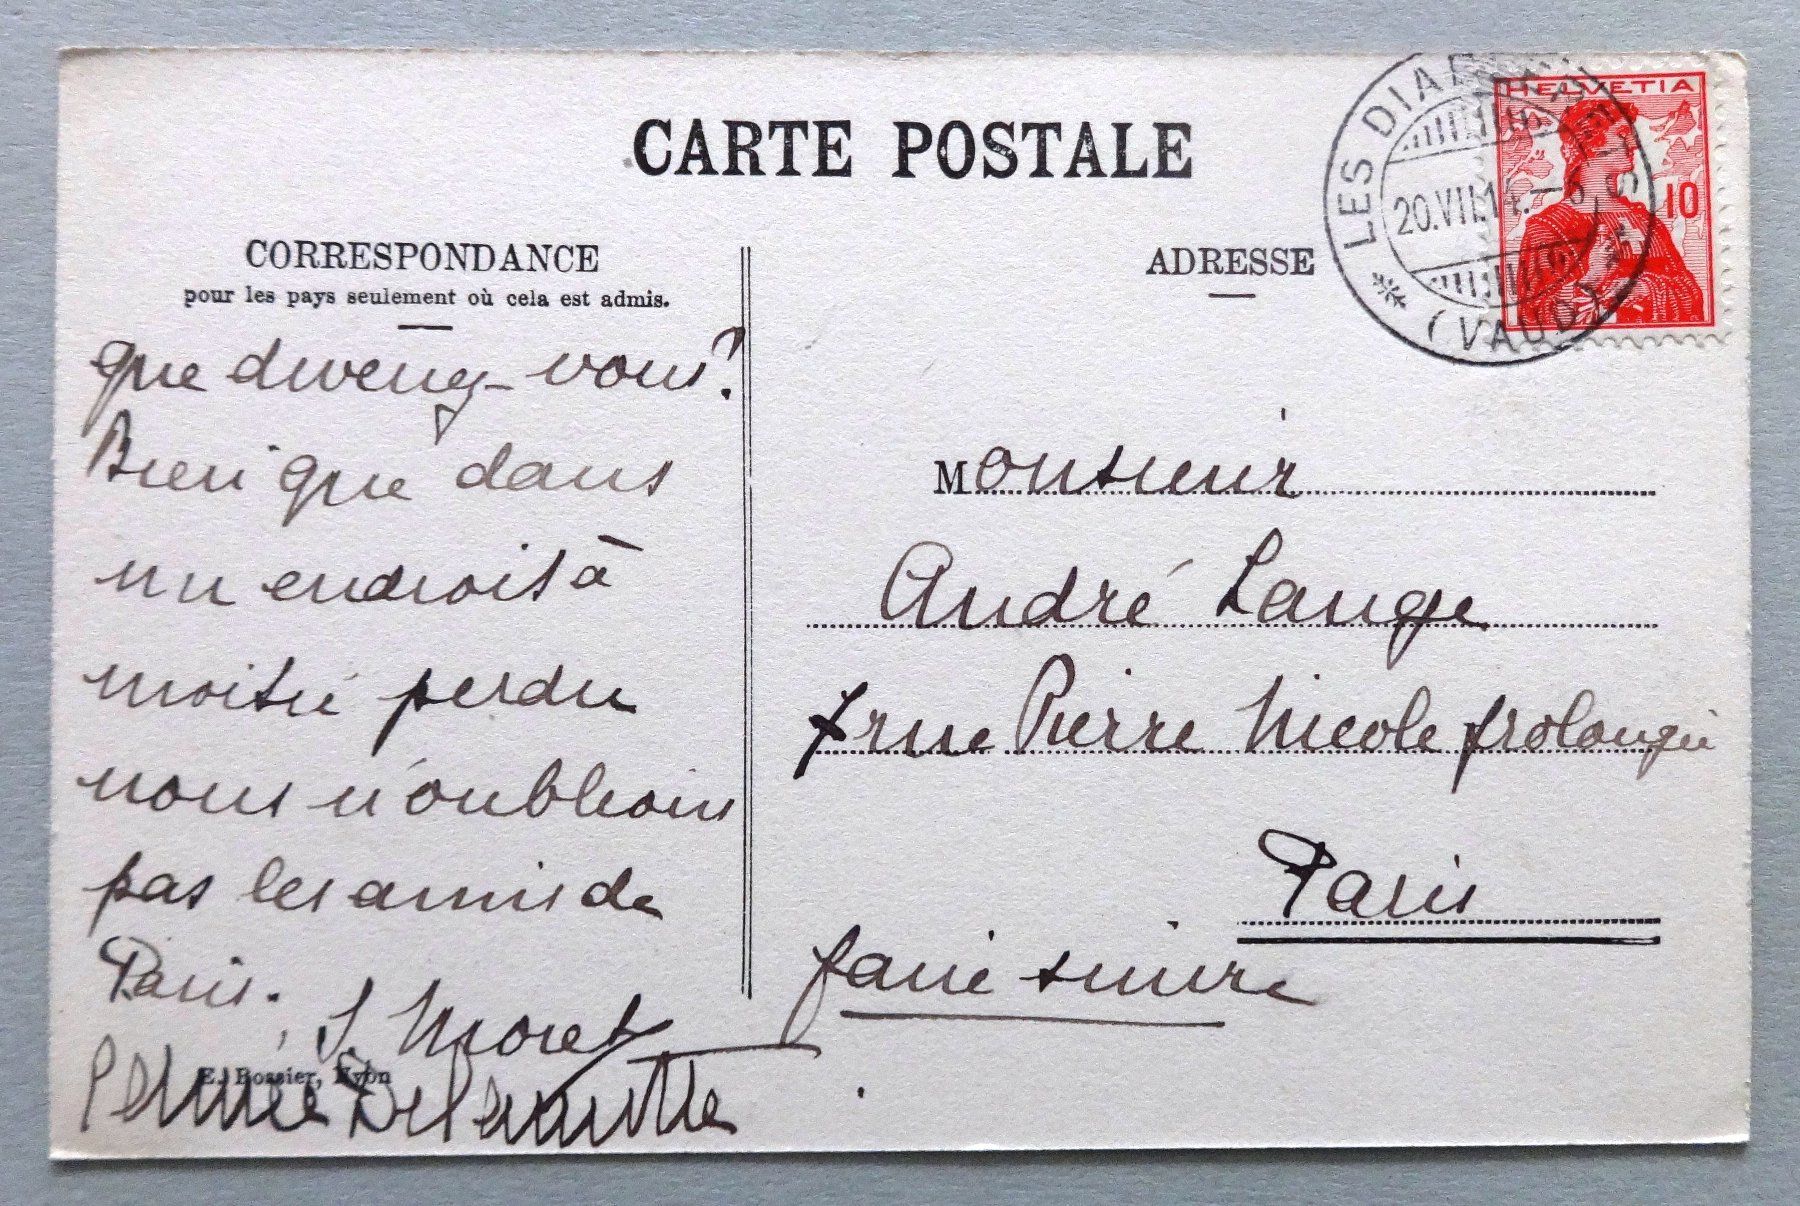 CARTE POSTALE
CORRESPONDANCE
pour les pays seulement où cela est admis.
ADRESSE
HELVETIA
10
LES DIABLERETS
20.VII.14.–6
(VAUD)
que devenez-vous?
Bien que dans
un endroit à
moitié perdu
nous n'oublions
pas les amis de
Paris.
J. Moret
E. Rossier, Nyon
Monsieur
André Lange
7 rue Pierre Nicole prolongée
Paris
faire suivre